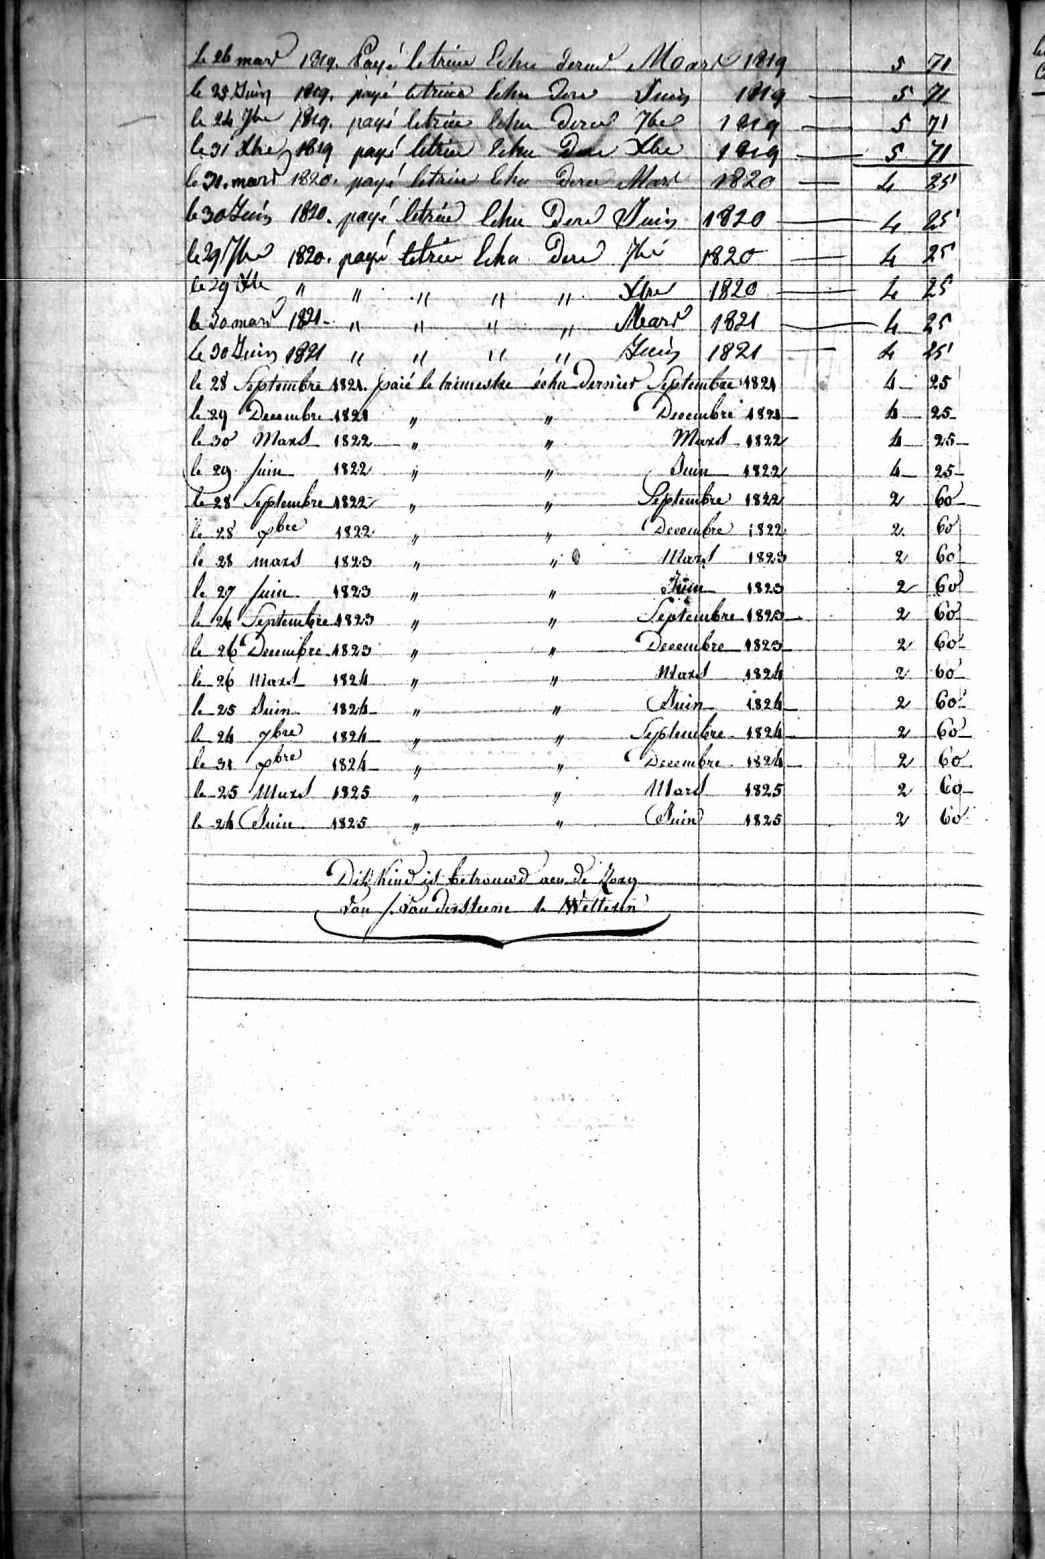 le 26 mars 1819. Payé le trim Echu dernr Mars 1819 5 71
le 25 Juin 1819. payé le trim Echu Derr Juin 1819 — 5 71
le 24 7bre 1819. payé le trim Echu Derr 7bre 1819 — 5 71
le 31 Xbre 1819 payé le trim Echu Derr Xbre 1819 — 5 71
le 31. mars 1820. payé le trim Echu Derr Mars 1820 — 4 25
le 30 Juin 1820. payé le trim Echu Derr Juin 1820 — 4 25
le 29 7bre 1820. payé le trim Echu Derr 7bre 1820 — 4 25
le 29 Xbre " " " " " Xbre 1820 — 4 25
le 30 mars 1821 " " " " Mars 1821 — 4 25
le 30 Juin 1821 " " " " Juin 1821 — 4 25
le 28 Septembre 1821. paié le trimestre échu dernier Septembre 1821 4 25
le 29 Decembre 1821 " " Decembre 1821 4 25
le 30 Mars 1822 " " Mars 1822 4 25
le 29 Juin 1822 " " Juin 1822 4 25
le 28 Septembre 1822 " " Septembre 1822 2 60
le 28 xbre 1822 " " Decembre 1822 2 60
le 28 mars 1823 " " Mars 1823 2 60
le 27 Juin 1823 " " Juin 1823 2 60
le 26 Septembre 1823 " " Septembre 1823 2 60
le 26 Decembre 1823 " " Decembre 1823 2 60
le 26 Mars 1824 " " Mars 1824 2 60
le 25 Juin 1824 " " Juin 1824 2 60
le 24 7bre 1824 " " Septembre 1824 2 60
le 31 xbre 1824 " " Decembre 1824 2 60
le 25 Mars 1825 " " Mars 1825 2 60
le 24 Juin 1825 " " Juin 1825 2 60
Dit Kind is betrouwd aen de Zorg
van J. Van der Steene te Wetteren